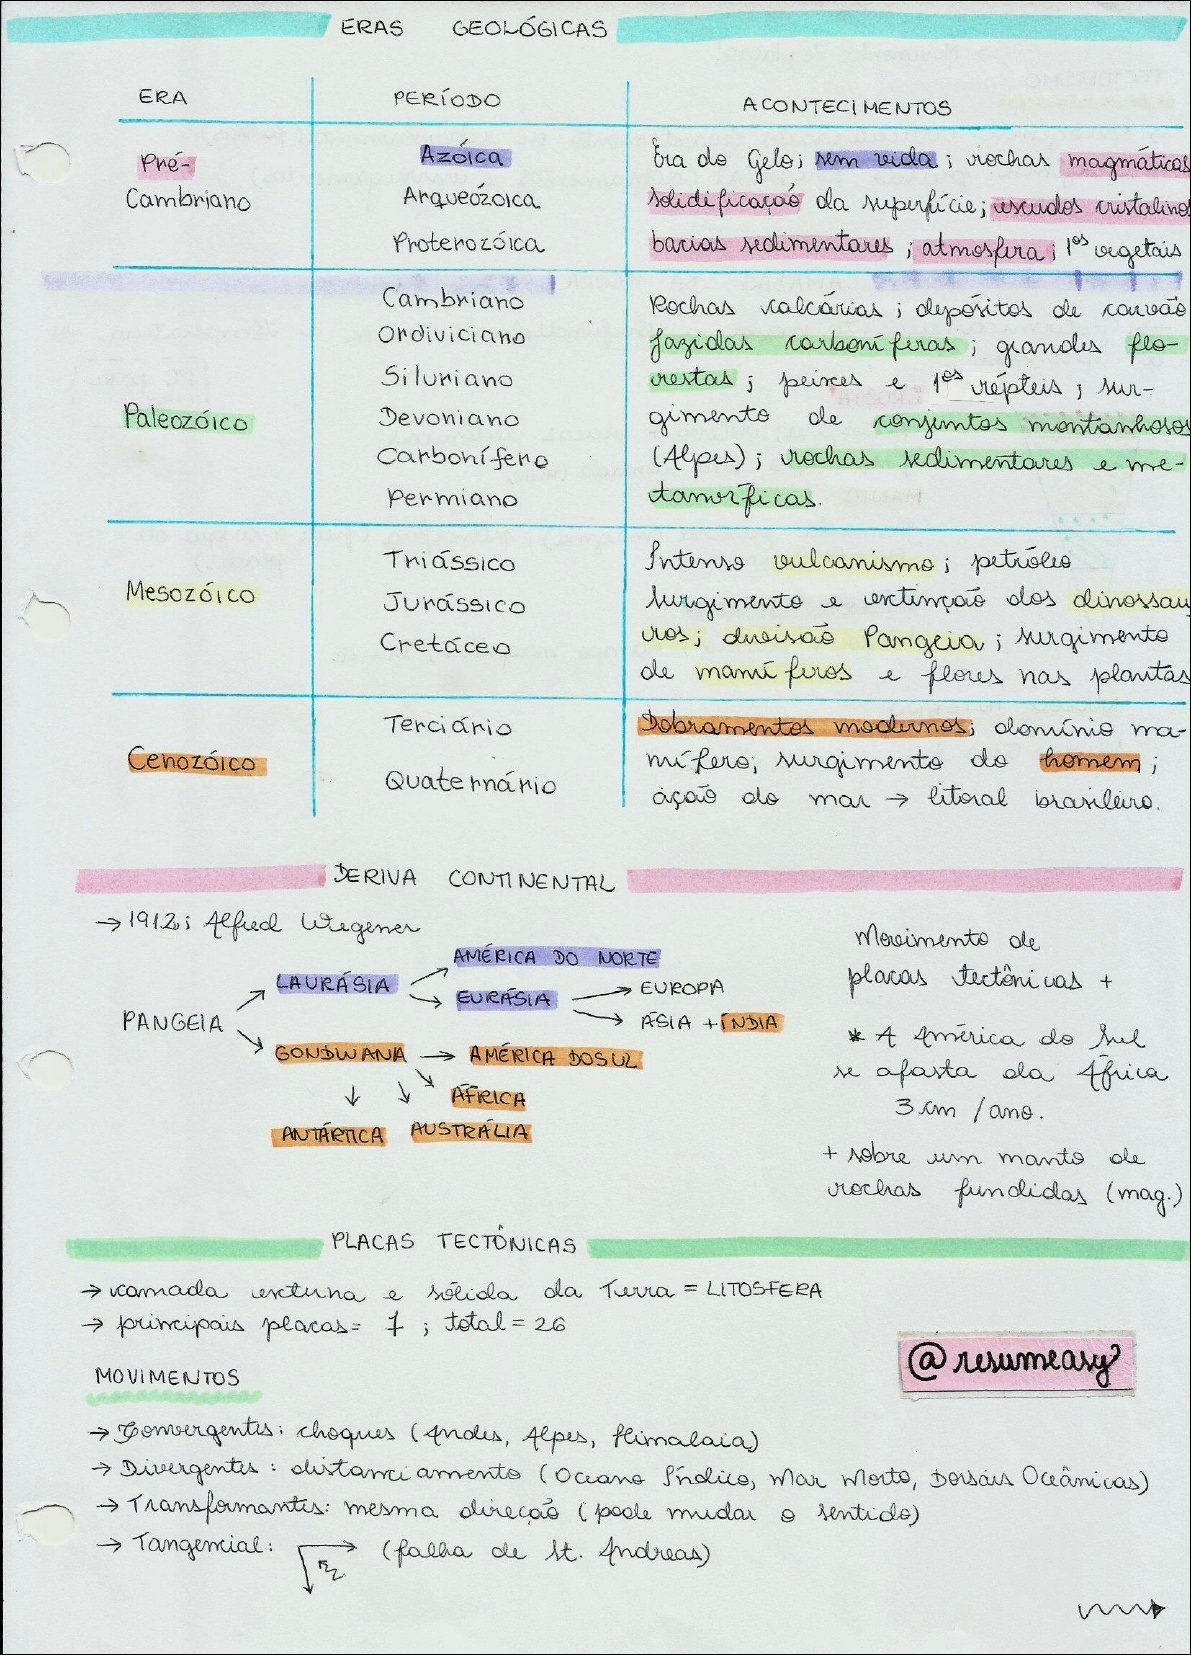 ERAS GEOLÓGICAS
ERA PERÍODO ACONTECIMENTOS
Pré-
Cambriano
Azóica
Arqueózoica
Proterozóica
Era do Gelo; sem vida; rochas magmáticas
solidificação da superfície; escudos cristalinos
bacias sedimentares; atmosfera; 1ºs vegetais
Paleozóico
Cambriano
Ordiviciano
Siluriano
Devoniano
Carbonífero
Permiano
Rochas calcárias; depósitos de carvão
jazidas carboníferas; grandes flo-
restas; peixes e 1ºs répteis; sur-
gimento de conjuntos montanhosos
(Alpes); rochas sedimentares e me-
tamórficas.
Mesozóico
Triássico
Jurássico
Cretáceo
Intenso vulcanismo; petróleo
surgimento e extinção dos dinossau
ros; divisão Pangeia; surgimento
de mamíferos e flores nas plantas
Cenozóico
Terciário
Quaternário
Dobramentos modernos; domínio ma-
mífero; surgimento do homem;
ação do mar → litoral brasileiro.
DERIVA CONTINENTAL
→ 1912; Alfred Wegener
PANGEIA
LAURÁSIA
AMÉRICA DO NORTE
EURÁSIA
EUROPA
ÁSIA + ÍNDIA
GONDWANA → AMÉRICA DO SUL
ÁFRICA
ANTÁRTICA AUSTRÁLIA
Movimento de
placas tectônicas +
* A América do Sul
se afasta da África
3 cm / ano.
+ sobre um manto de
rochas fundidas (mag.)
PLACAS TECTÔNICAS
→ camada externa e sólida da Terra = LITOSFERA
→ principais placas = 7; total = 26
@resumeasy
MOVIMENTOS
→ Convergentes: choques (Andes, Alpes, Himalaia)
→ Divergentes: distanciamento (Oceano Índico, Mar Morto, Dorsais Oceânicas)
→ Transformantes: mesma direção (pode mudar o sentido)
→ Tangencial: (falha de St. Andreas)